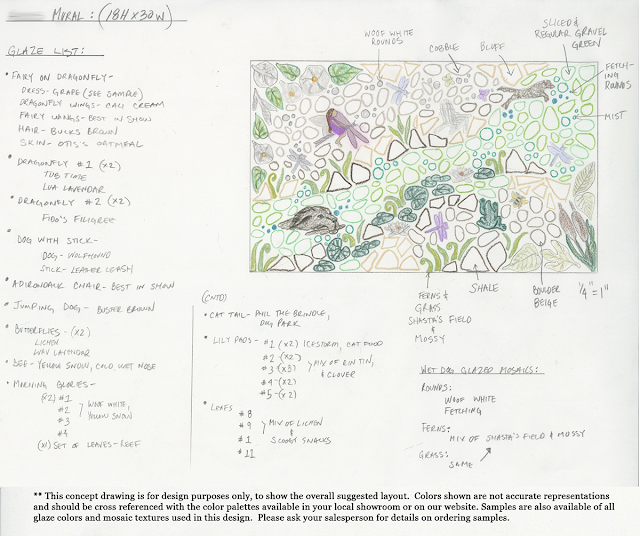 MURAL: (18H X 30W)
GLAZE LIST:
• FAIRY ON DRAGONFLY-
DRESS- GRAPE (SEE SAMPLE)
DRAGONFLY WINGS- CALI CREAM
FAIRY WINGS- BEST IN SHOW
HAIR- BUCKS BROWN
SKIN- OTIS'S OATMEAL
• DRAGONFLY #1 (X2)
TUB TIME
LUV LAVENDAR
• DRAGONFLY #2 (X2)
FIDO'S FILIGREE
• DOG WITH STICK-
DOG- WOLFHOUND
STICK- LEADER LEASH
• ADIRONDACK CHAIR- BEST IN SHOW
• JUMPING DOG- BUSTER BROWN
• BUTTERFLIES- (X2)
LICHEN
LUV LAVENDAR
• BEE- YELLOW SNOW, COLD, WET NOSE
• MORNING GLORIES-
(X2) #1
#2
#3
#4
WOOF WHITE,
YELLOW SNOW
(X1) SET OF LEAVES- REEF
(CNTD)
• CAT TAIL- PHIL THE BRINDLE,
DOG PARK
• LILY PADS- #1 (X2) ICESTORM, CAT FOOD
#2 (X2)
#3 (X3)
#4 (X2)
#5 (X2)
MIX OF RIN TIN,
& CLOVER
• LEAFS #8
#9
#1
#11
MIX OF LICHEN
&
SCOOBY SNACKS
WOOF WHITE
ROUNDS
COBBLE
BLUFF
SLICED &
REGULAR GRAVEL
GREEN
FETCH-
ING
ROUNDS
MIST
FERNS &
GRASS
SHASTA'S FIELD
&
MOSSY
SHALE
BOULDER
BEIGE
1/4" = 1"
WET DOG GLAZED MOSAICS:
ROUNDS:
WOOF WHITE
FETCHING
FERNS:
MIX OF SHASTA'S FIELD & MOSSY
GRASS:
SAME
** This concept drawing is for design purposes only, to show the overall suggested layout. Colors shown are not accurate representations
and should be cross referenced with the color palettes available in your local showroom or on our website. Samples are also available of all
glaze colors and mosaic textures used in this design. Please ask your salesperson for details on ordering samples.